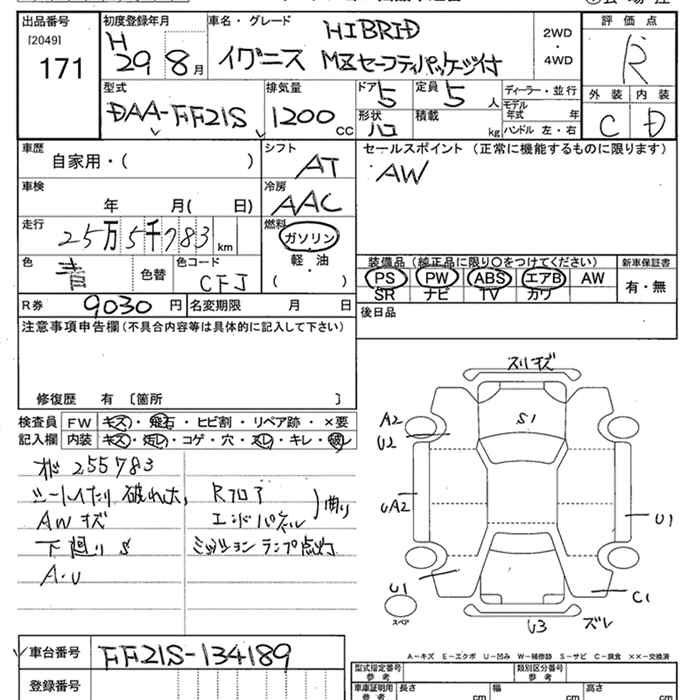 出品番号 初度登録年月 車名・グレード 評価点
[2049] H HIBRID 2WD
171 29 8月 イグニス MZセーフティパッケージ付 ・ R
4WD
型式 排気量 ドア 5 定員 5人 ディーラー・並行 外装 内装
DAA-FF21S 1200cc 形状 ハコ 積載 kg モデル年式 年 C D
ハンドル 左・右
車歴 シフト セールスポイント (正常に機能するものに限ります)
自家用・( ) AT AW
車検 冷房
年 月( 日) AAC
走行 燃料
25万5千783km ガソリン
色 色替 色コード 軽油 装備品 (純正品に限り○をつけてください) 新車保証書
青 CFJ ・ PS PW ABS エアB AW 有・無
( ) SR ナビ TV カワ
R券 9030円 名変期限 月 日 後日品
注意事項申告欄 (不具合内容等は具体的に記入して下さい)
修復歴 有 〔箇所 〕
検査員 FW キズ・飛石・ヒビ割・リペア跡・×要
記入欄 内装 キズ・汚レ・コゲ・穴・スレ・キレ・破レ
255783
AWキズ
下廻りS
A・U
Rフロア
エンドパネル
曲り
ミッションランプ点灯
スリキズ
A2
U2
S1
UA2
U1
U1
C1
スペア
U3 ズレ
A-キズ E-エクボ U-凹み W-補修跡 S-サビ C-腐食 ××-交換済
車台番号 FF21S-134189
登録番号
型式指定番号 参考 類別区分番号 参考
車庫証明用 参考 長さ cm 幅 cm 高さ cm